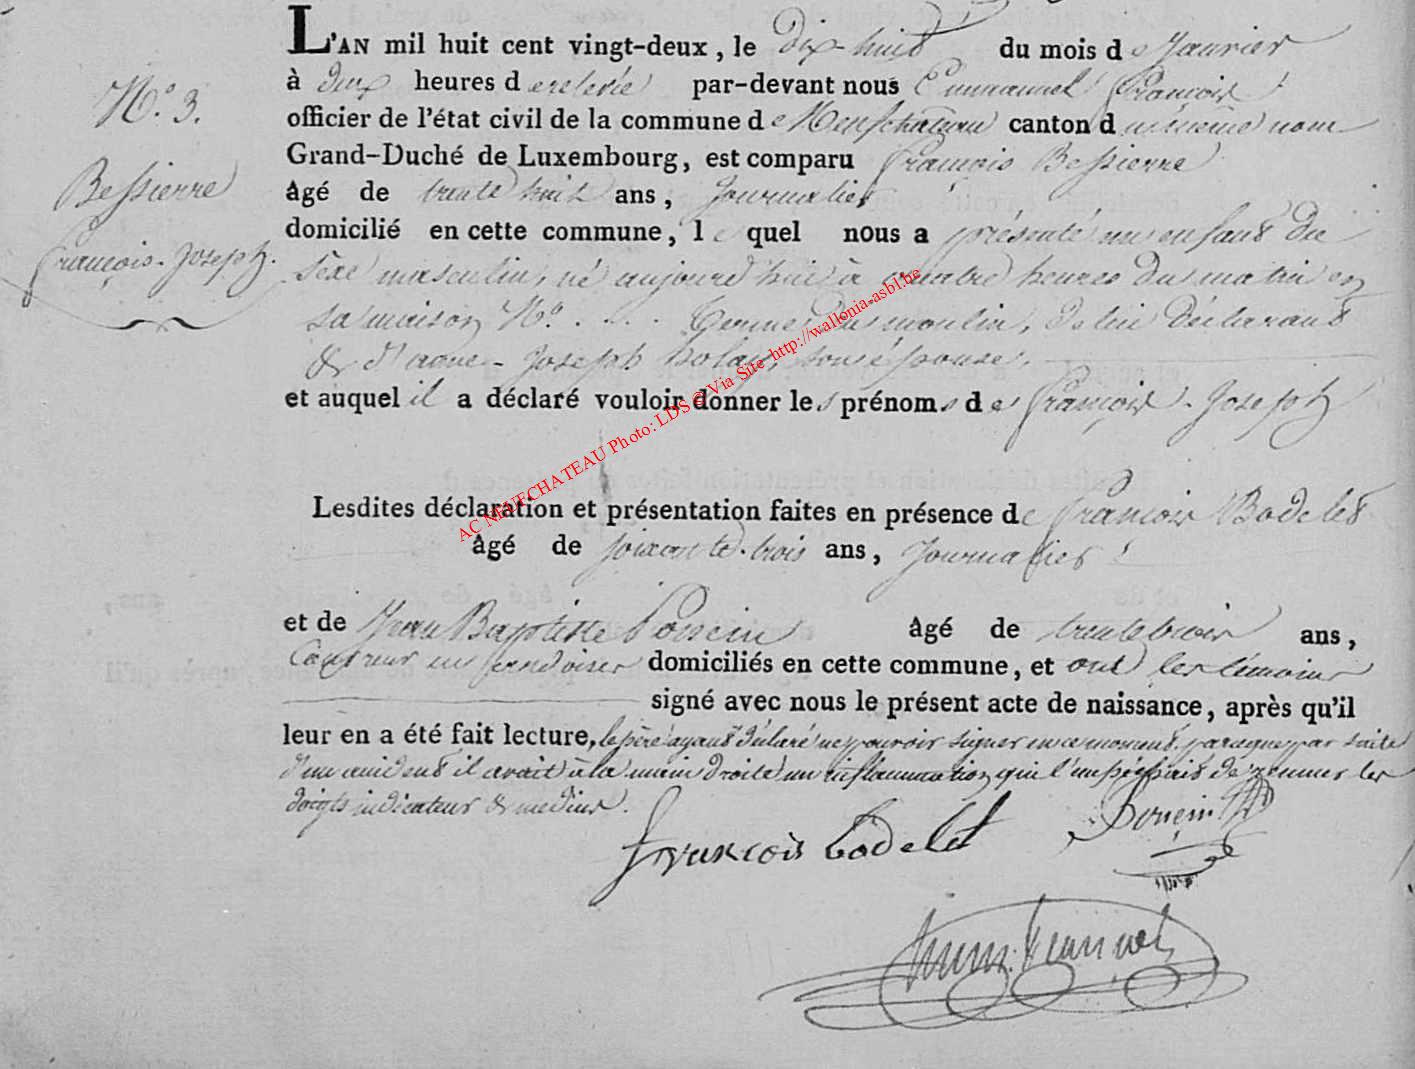 L'AN mil huit cent vingt-deux, le dix-huit du mois de Janvier
N.o 3.
à deux heures de relevée par-devant nous Emmanuel François
officier de l'état civil de la commune de Neufchateau canton du même nom
Grand-Duché de Luxembourg, est comparu François Bessierre
Bessierre
François-Joseph.
âgé de trente huit ans, Journalier
domicilié en cette commune, lequel nous a présenté un enfant du
sexe masculin, né aujourd'hui à quatre heures du matin en
sa maison N.o . . . . du moulin, de lui déclarant
& d'anne-Joseph son épouse,
et auquel il a déclaré vouloir donner les prénoms de François-Joseph
AC NEUFCHATEAU Photo: LDS © Via Site http://wallonia-asbl.be
Lesdites déclaration et présentation faites en présence de François Bodelet
âgé de soixante-trois ans, Journalier
et de Jean Baptiste âgé de trente trois ans,
Couvreur en ardoises domiciliés en cette commune, et ont les témoins
signé avec nous le présent acte de naissance, après qu'il
leur en a été fait lecture, le père ayant déclaré ne pouvoir signer en ce moment, parceque par suite
d'un accident il avait à la main droite un inflammation qui l'empêchait de remuer les
doigts indicateur & medius.
françois bodelet